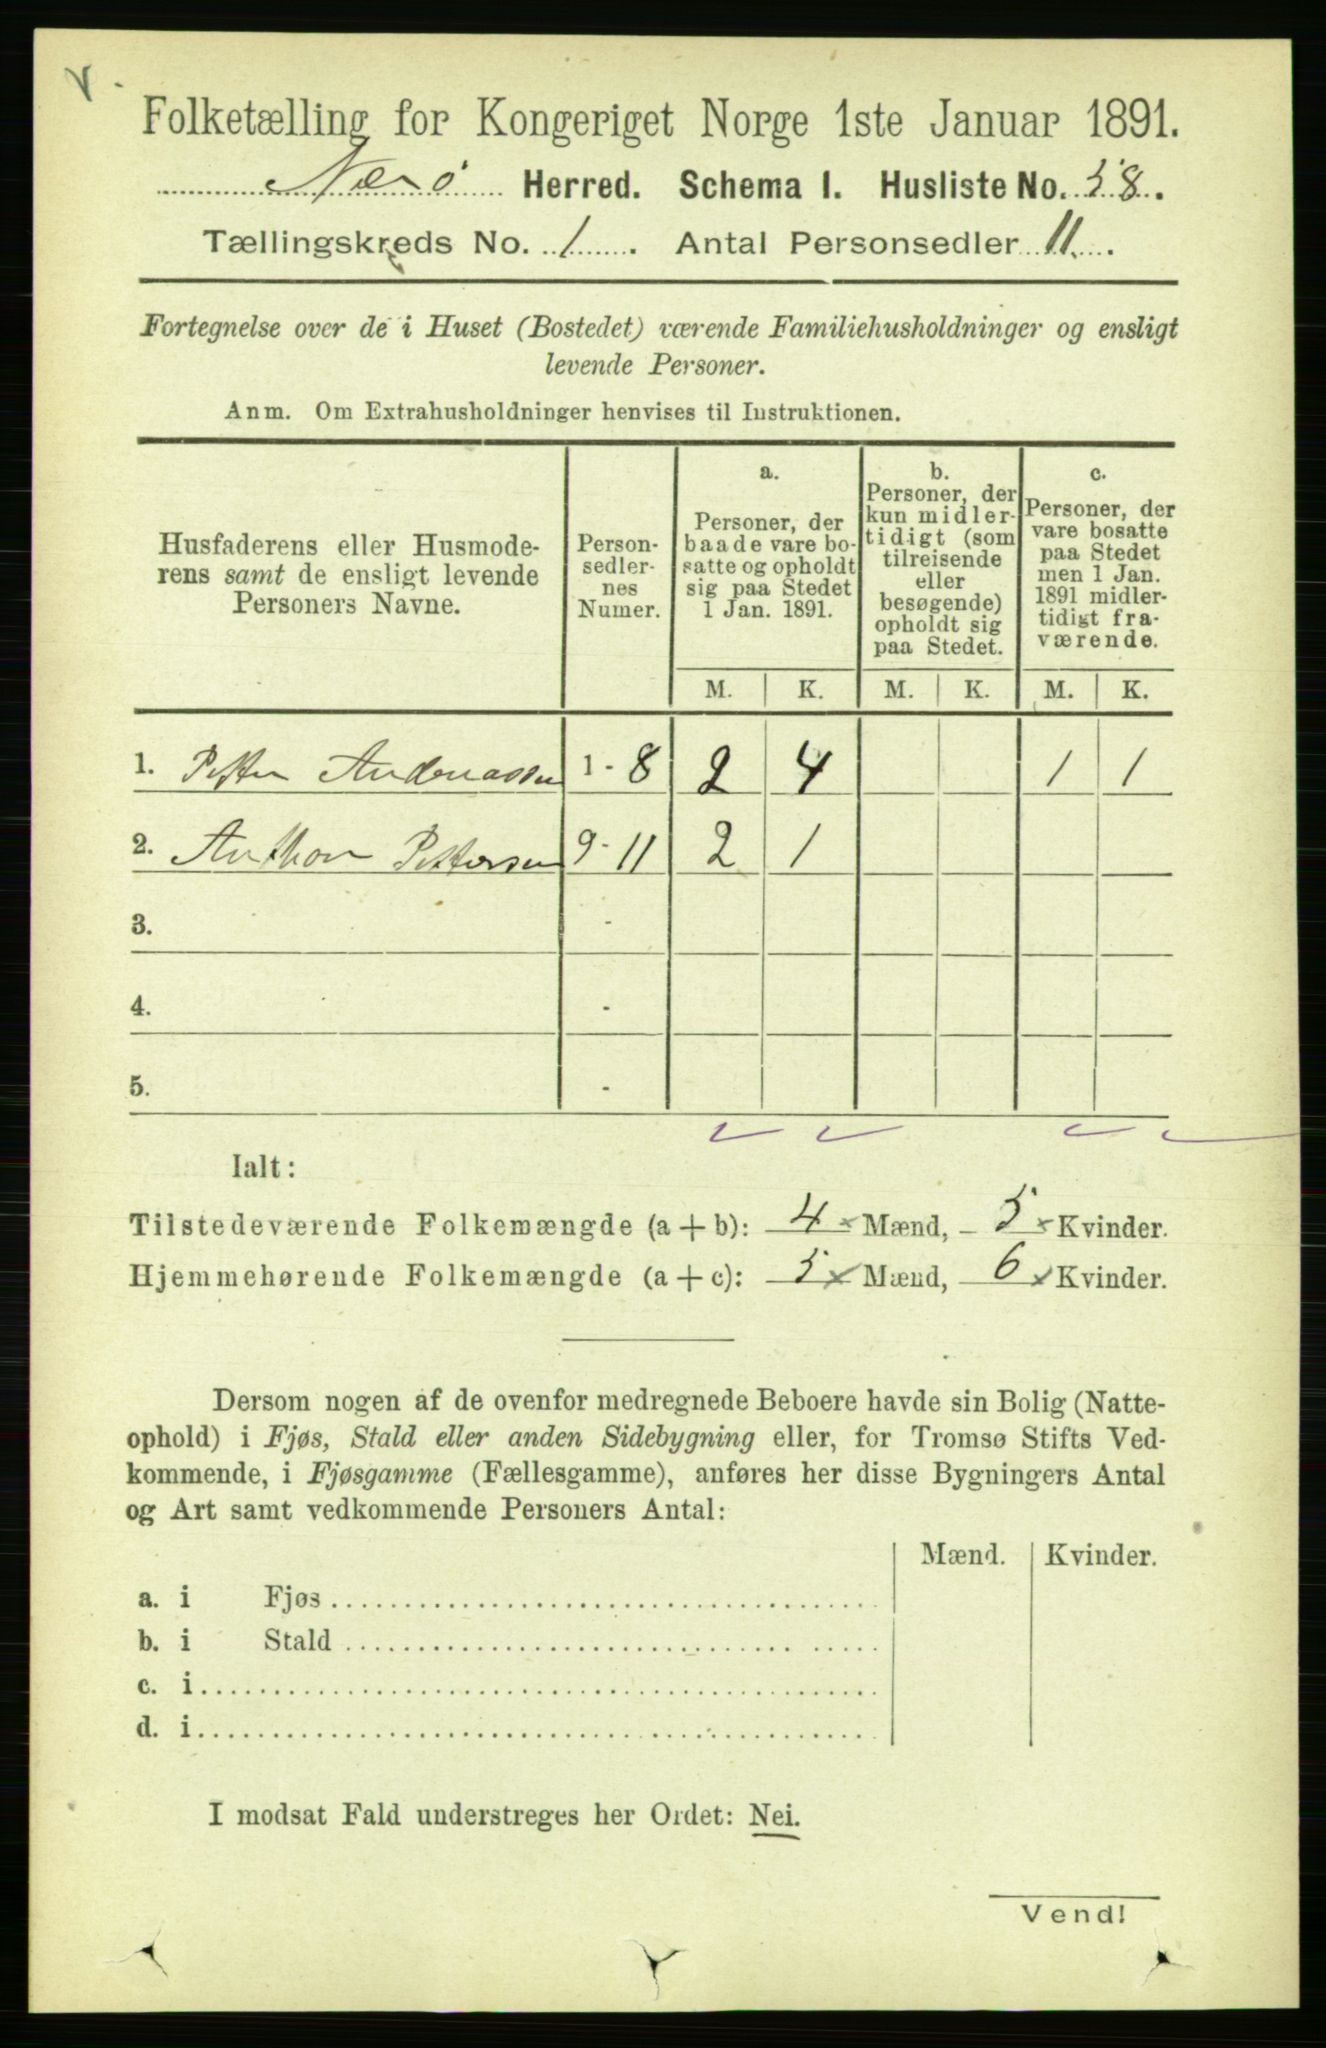 Folketælling for Kongeriget Norge 1ste Januar 1891.
Nærö Herred. Schema I. Husliste No. 58.
Tællingskreds No. 1. Antal Personsedler 11.
Fortegnelse over de i Huset (Bostedet) værende Familiehusholdninger og ensligt
levende Personer.
Anm. Om Extrahusholdninger henvises til Instruktionen.
Husfaderens eller Husmode-
rens samt de ensligt levende
Personers Navne.
Person-
sedler-
nes
Numer.
a.
Personer, der
baade vare bo-
satte og opholdt
sig paa Stedet
1 Jan. 1891.
b.
Personer, der
kun midler-
tidigt (som
tilreisende
eller
besøgende)
opholdt sig
paa Stedet.
c.
Personer, der
vare bosatte
paa Stedet
men 1 Jan.
1891 midler-
tidigt fra-
værende.
M. K. M. K. M. K.
1. Petter Andreassen 1 - 8 2 4 1 1
2. Anthon Pettersen 9 - 11 2 1
3. -
4. -
5. -
Ialt:
Tilstedeværende Folkemængde (a + b): 4 × Mænd, 5 × Kvinder.
Hjemmehørende Folkemængde (a + c): 5 × Mænd, 6 × Kvinder.
Dersom nogen af de ovenfor medregnede Beboere havde sin Bolig (Natte-
ophold) i Fjøs, Stald eller anden Sidebygning eller, for Tromsø Stifts Ved-
kommende, i Fjøsgamme (Fællesgamme), anføres her disse Bygningers Antal
og Art samt vedkommende Personers Antal:
Mænd. Kvinder.
a. i Fjøs
b. i Stald
c. i
d. i
I modsat Fald understreges her Ordet: Nei.
Vend!